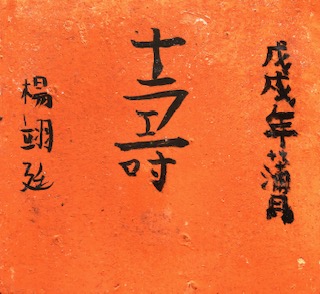 戊戌年蒲月
壽
楊翊廷